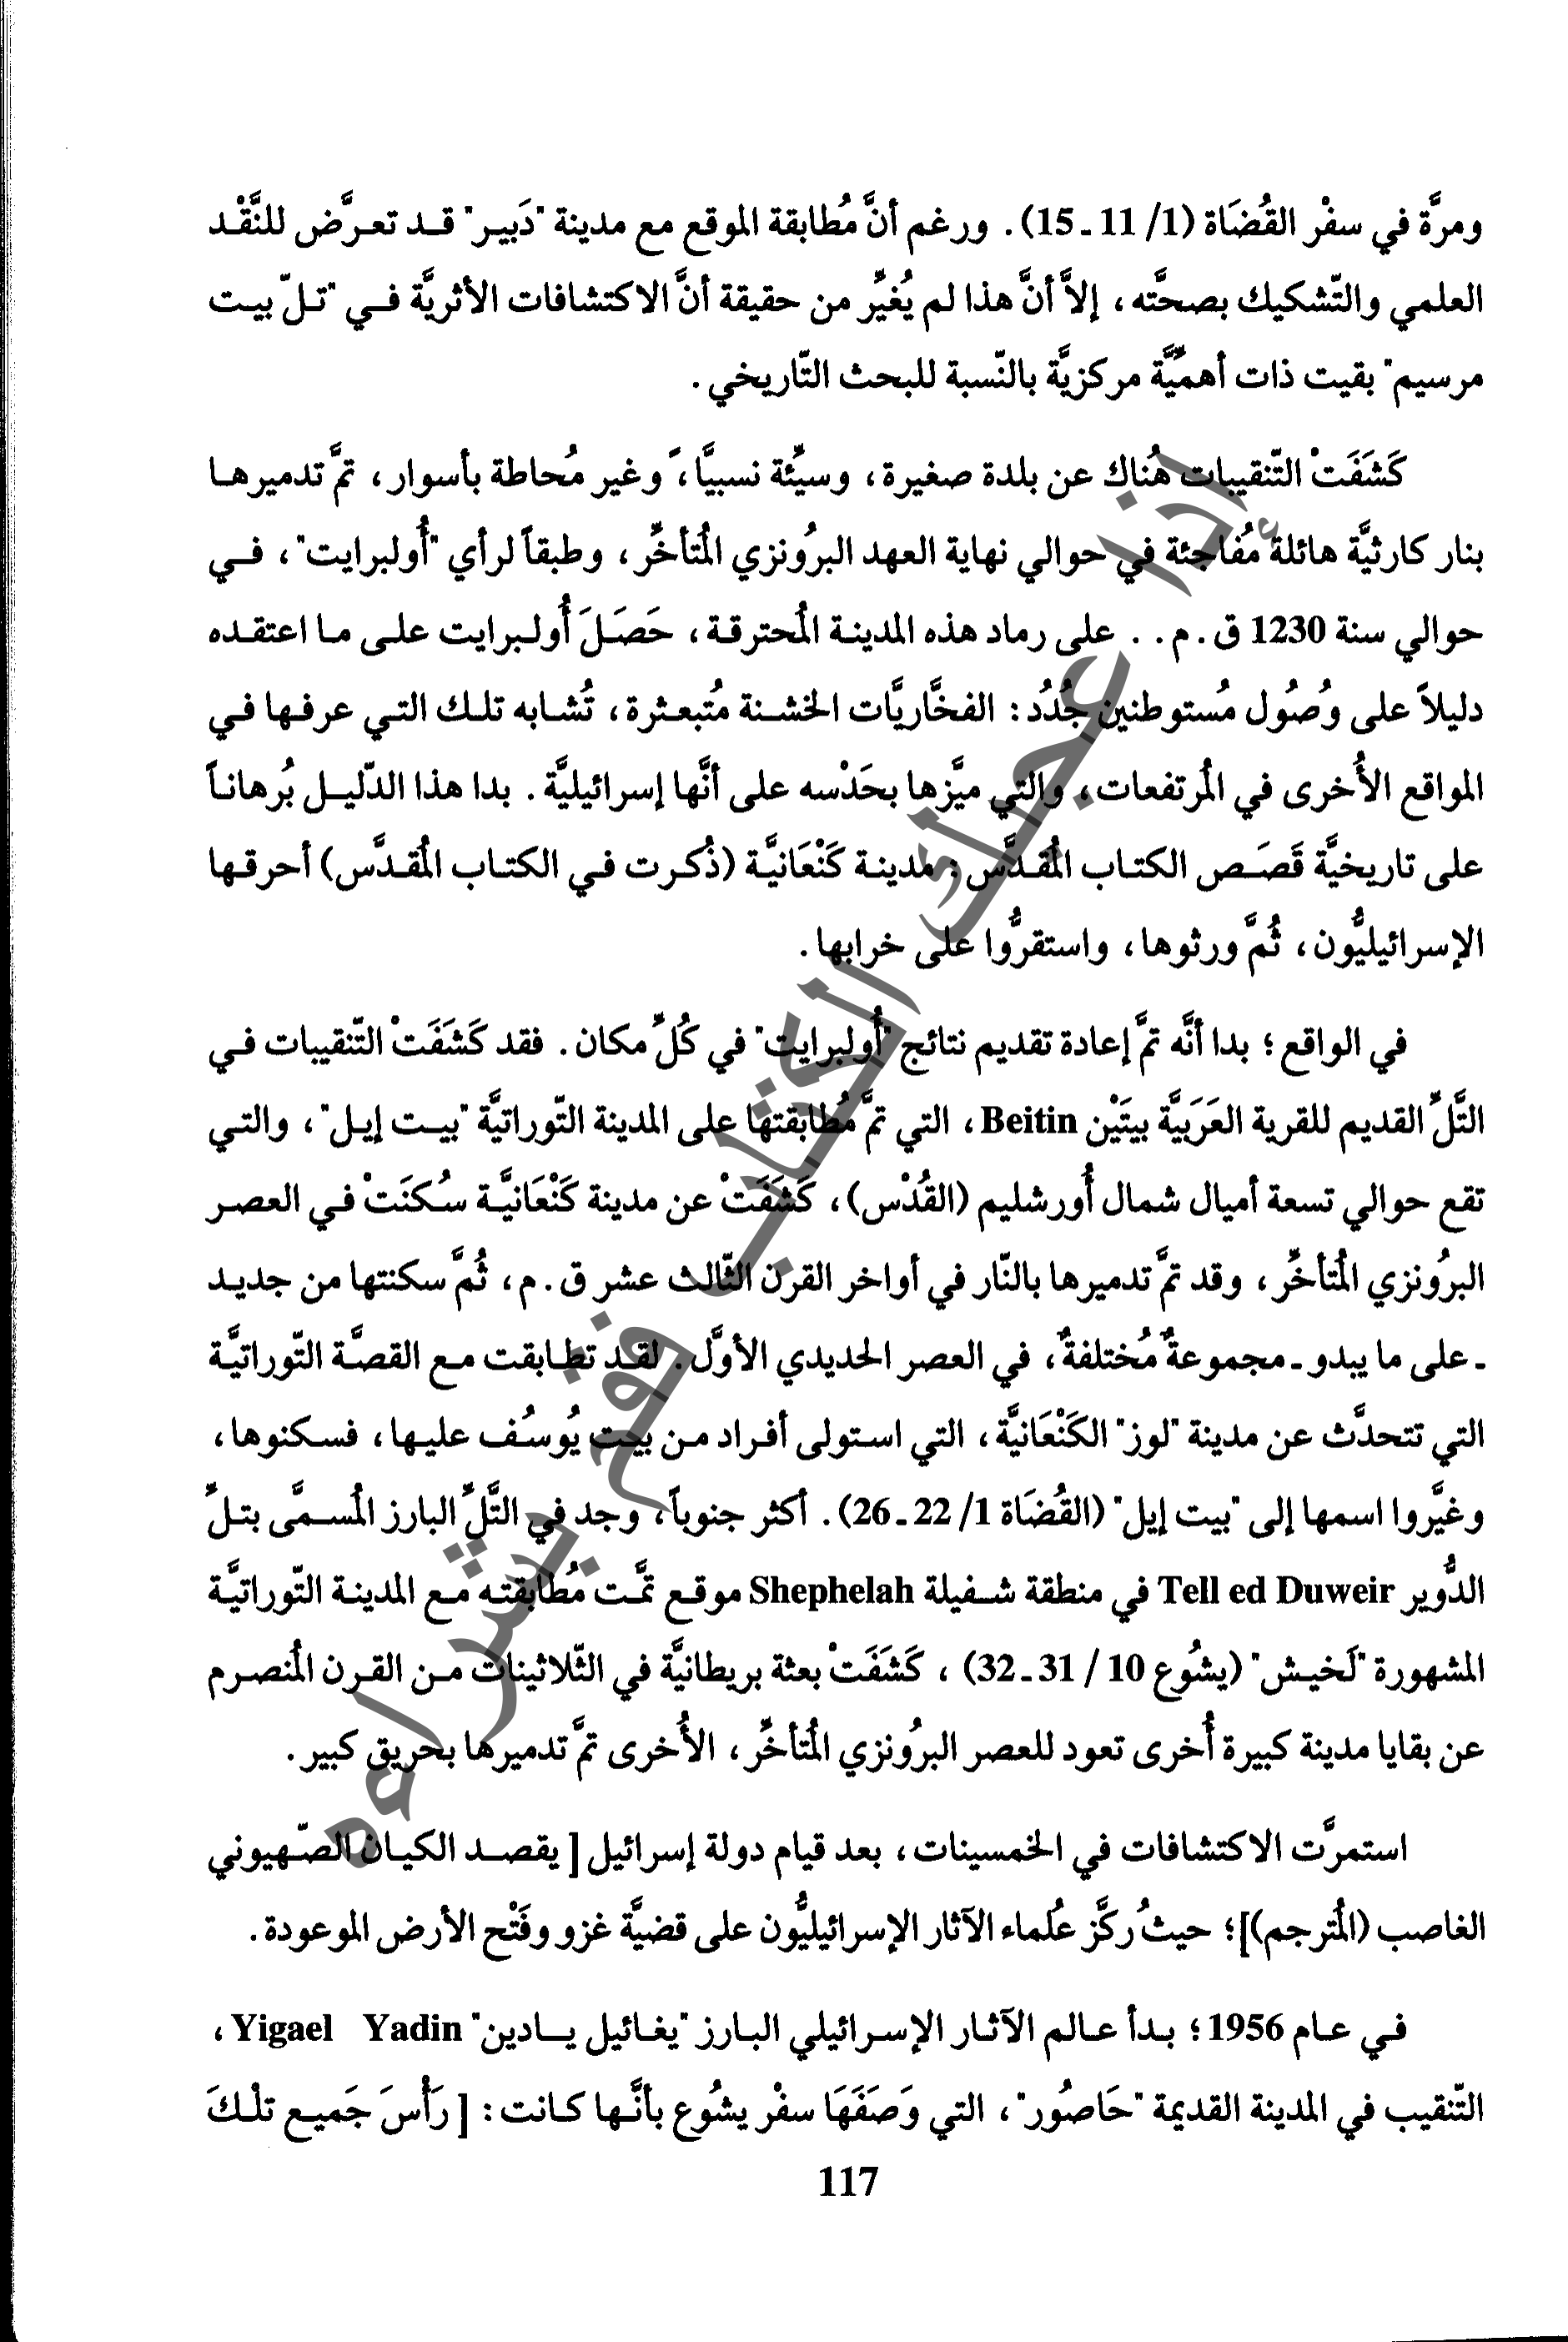 ومرَّة في سفْر القُضَاة (1/ 11 ـ 15). ورغم أنَّ مُطابقة الموقع مع مدينة "دَبير" قد تعرَّض للنَّقْد
العلمي والتّشكيك بصحَّته، إلاَّ أنَّ هذا لم يُغيِّر من حقيقة أنَّ الاكتشافات الأثريَّة في "تلّ بيت
مرسيم" بقيت ذات أهميَّة مركزيَّة بالنّسبة للبحث التّاريخي.
كَشَفَتْ التّنقيبات هُناك عن بلدة صغيرة، وسيِّئة نسبيَّاً، وغير مُحاطة بأسوار، تمَّ تدميرها
بنار كارثيَّة هائلة مُفاجئة في حوالي نهاية العهد البرُونزي المُتأخِّر، وطبقاً لرأي "أُولبرايت"، في
حوالي سنة 1230 ق. م. . على رماد هذه المدينة المُحترقة، حَصَلَ أُولبرايت على ما اعتقده
دليلاً على وُصُول مُستوطنين جُدُد: الفخَّاريَّات الخشنة مُتبعثرة، تُشابه تلك التي عرفها في
المواقع الأُخرى في المُرتفعات، والتي ميَّزها بحَدْسه على أنَّها إسرائيليَّة. بدا هذا الدّليل بُرهاناً
على تاريخيَّة قَصَص الكتاب المُقدَّس: مدينة كَنْعَانيَّة (ذُكرت في الكتاب المُقدَّس) أحرقها
الإسرائيليُّون، ثُمَّ ورثوها، واستقرُّوا على خرابها.
في الواقع؛ بدا أنَّه تمَّ إعادة تقديم نتائج "أُولبرايت" في كُلِّ مكان. فقد كَشَفَتْ التّنقيبات في
التَّلِّ القديم للقرية العَرَبيَّة بيتَيْن Beitin، التي تمَّ مُطابقتها على المدينة التّوراتيَّة "بيت إيل"، والتي
تقع حوالي تسعة أميال شمال أُورشليم (القُدْس)، كَشَفَتْ عن مدينة كَنْعَانيَّة سُكنَتْ في العصر
البرُونزي المُتأخِّر، وقد تمَّ تدميرها بالنّار في أواخر القرن الثّالث عشر ق. م، ثُمَّ سكنتها من جديد
ـ على ما يبدو ـ مجموعةٌ مُختلفةٌ، في العصر الحديدي الأوَّل. لقد تطابقت مع القصَّة التّوراتيَّة
التي تتحدَّث عن مدينة "لوز" الكَنْعَانيَّة، التي استولى أفراد من بيت يُوسُف عليها، فسكنوها،
وغيَّروا اسمها إلى "بيت إيل" (القُضَاة 1/ 22 ـ 26). أكثر جنوباً، وجد في التَّلِّ البارز المُسمَّى بتلِّ
الدُّوير Tell ed Duweir في منطقة شفيلة Shephelah موقع تمَّت مُطابقته مع المدينة التّوراتيَّة
المشهورة "لَخيش" (يشُوع 10 / 31 ـ 32) ، كَشَفَتْ بعثة بريطانيَّة في الثّلاثينات من القرن المُنصرم
عن بقايا مدينة كبيرة أُخرى تعود للعصر البرُونزي المُتأخِّر، الأُخرى تمَّ تدميرها بحريق كبير.
استمرَّت الاكتشافات في الخمسينات، بعد قيام دولة إسرائيل [يقصد الكيان الصّهيوني
الغاصب (المُترجم)]؛ حيثُ ركَّز عُلماء الآثار الإسرائيليُّون على قضيَّة غزو وفَتْح الأرض الموعودة.
في عام 1956؛ بدأ عالم الآثار الإسرائيلي البارز "يغائيل يادين" Yigael Yadin،
التّنقيب في المدينة القديمة "حَاصُور"، التي وَصَفَهَا سفْر يشُوع بأنَّها كانت: [رَأْسَ جَميع تلْكَ
117
إذا أعجبك الكتاب فقم بشراءه